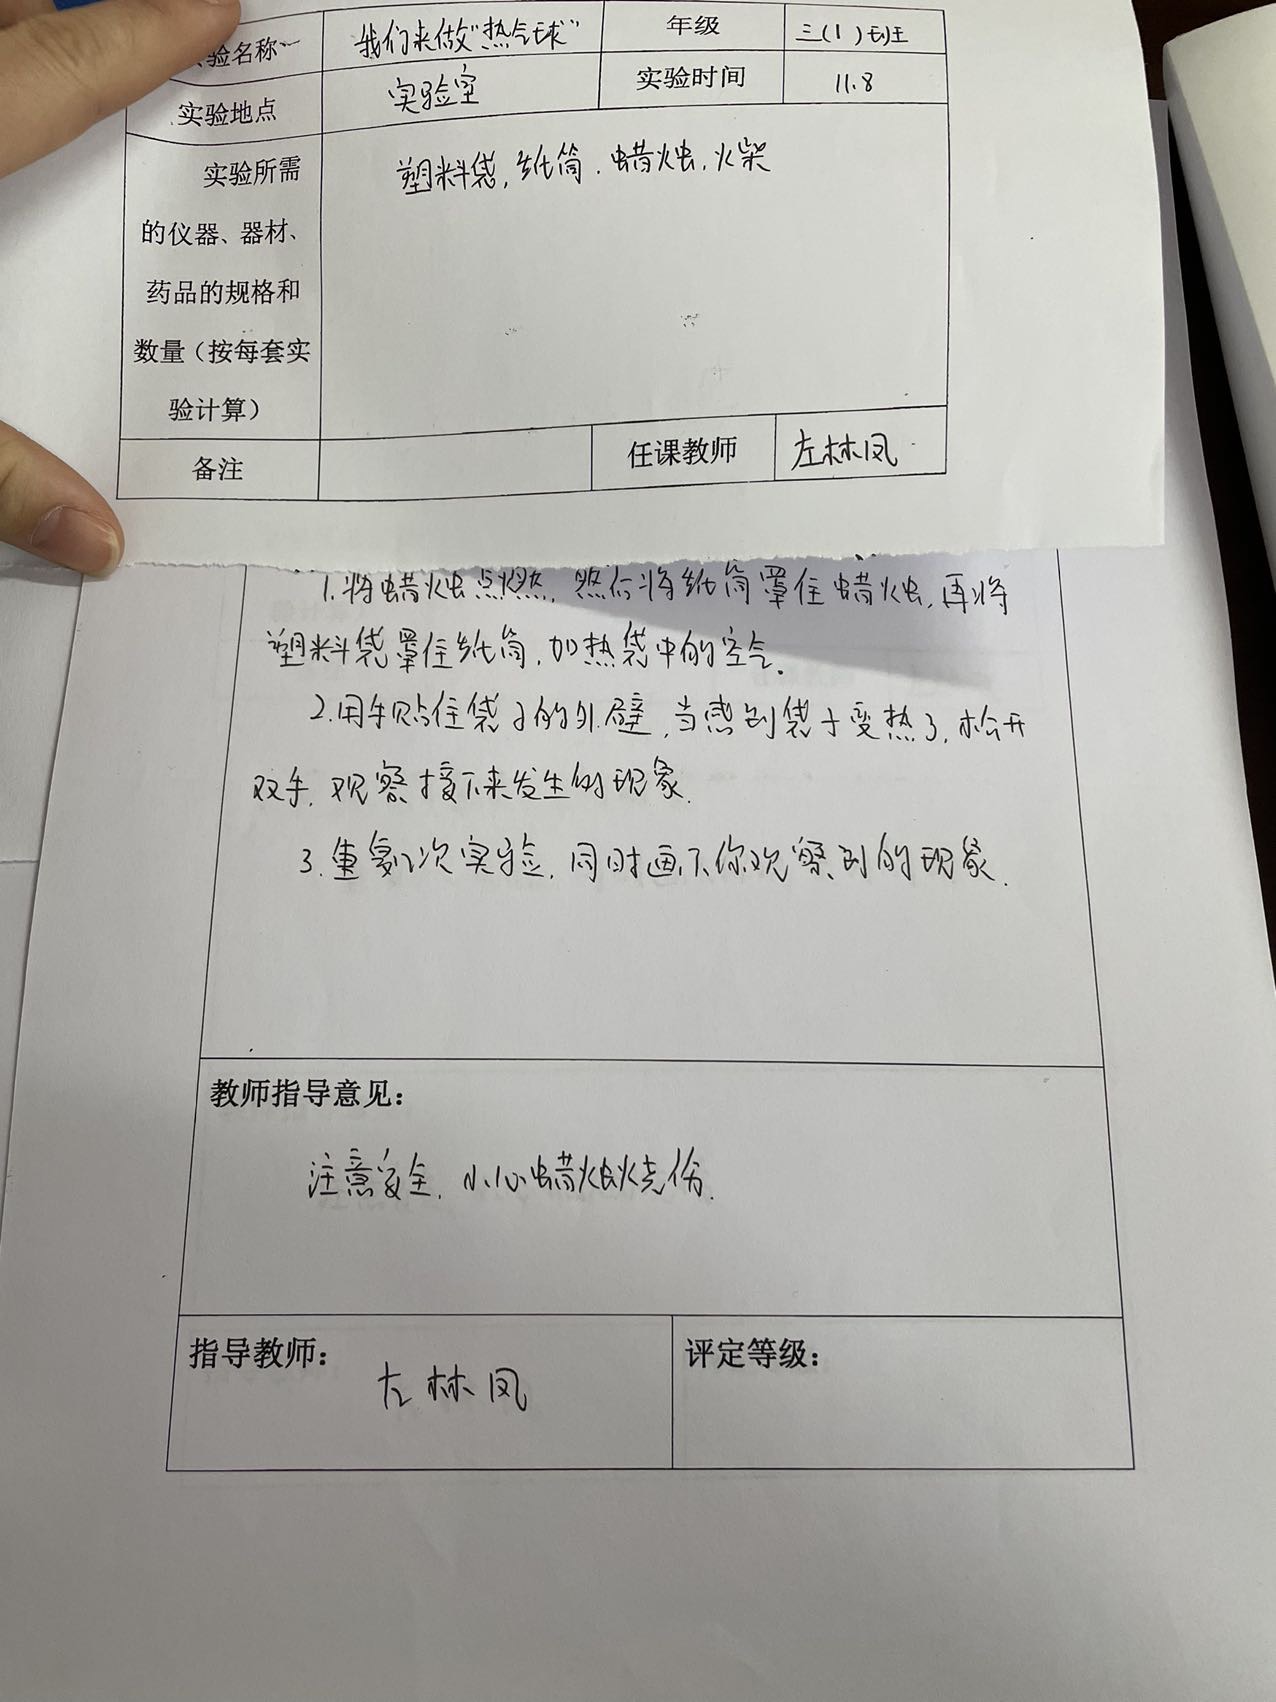 验名称 我们来做"热气球" 年级 三(1)班
实验地点 实验室 实验时间 11.8
实验所需 塑料袋,纸筒.蜡烛,火柴
的仪器、器材、
药品的规格和
数量(按每套实
验计算)
备注 任课教师 左林凤
1.将蜡烛点燃,然后将纸筒罩住蜡烛,再将
塑料袋罩住纸筒,加热袋中的空气。
2.用手贴住袋子的外壁,当感到袋子变热了,松开
双手,观察接下来发生的现象.
3.重复几次实验,同时画下你观察到的现象.
教师指导意见:
注意安全,小心蜡烛烧伤.
指导教师: 左林凤 评定等级: